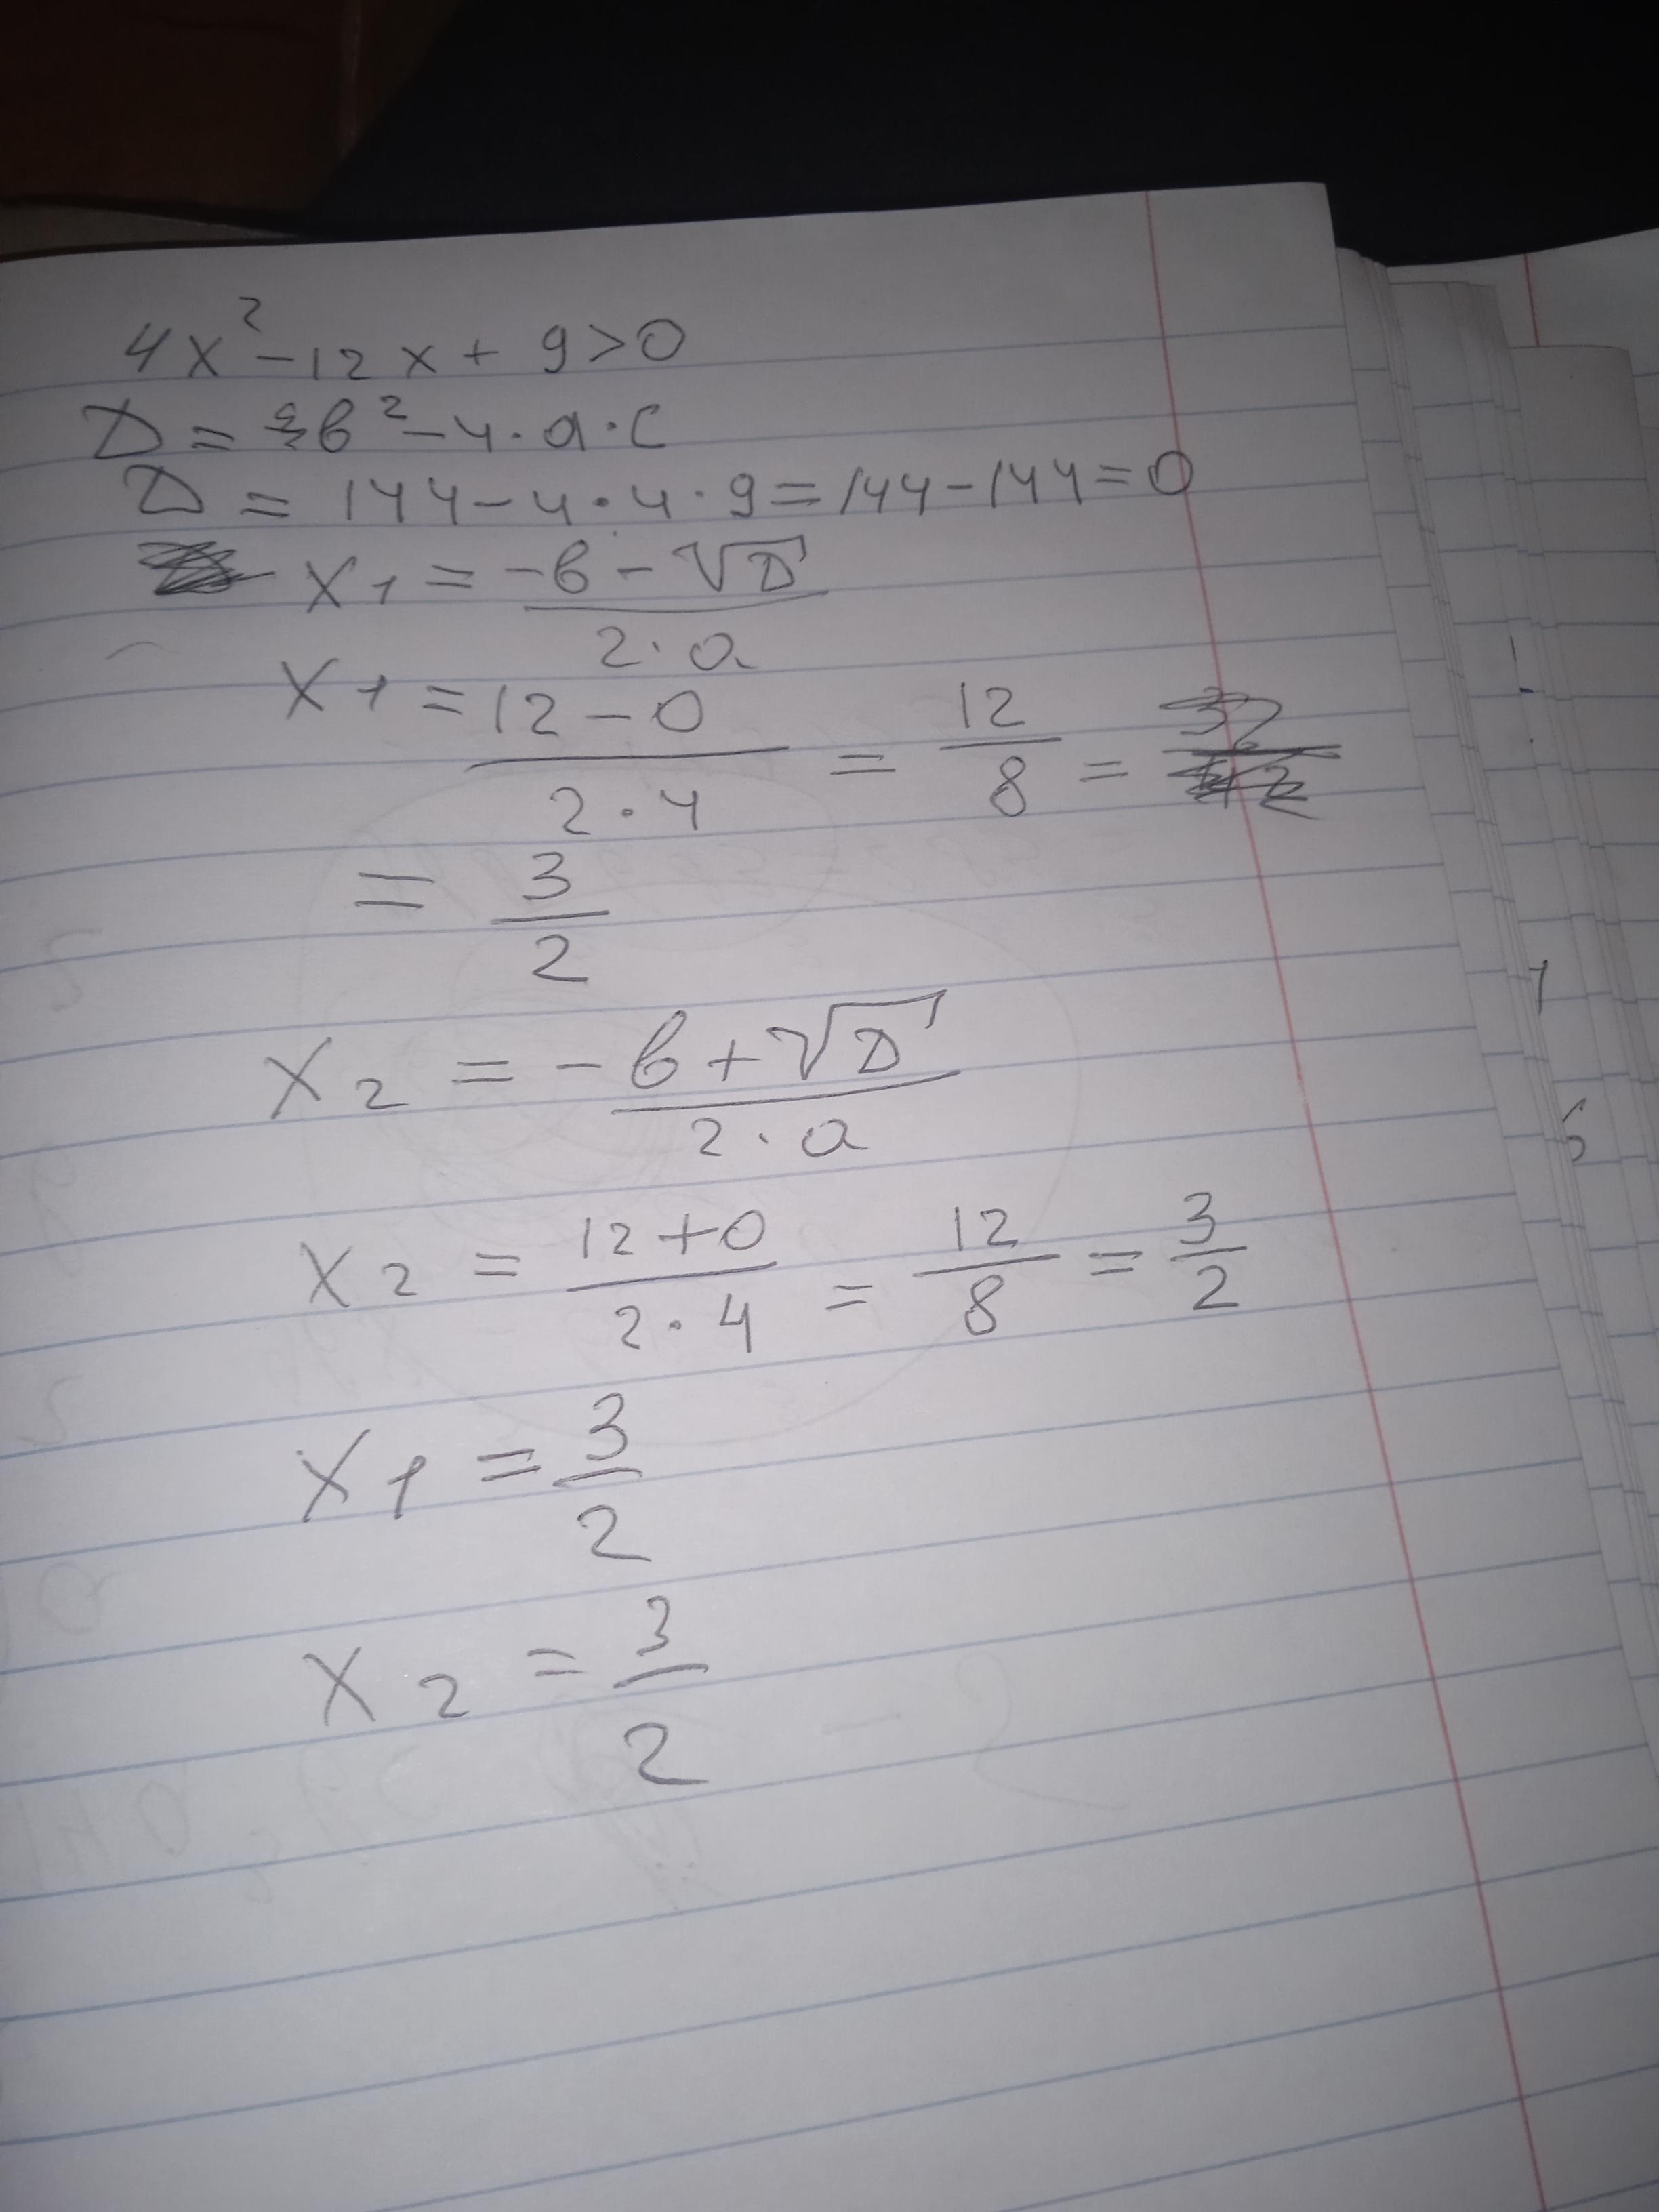 4x² - 12x + 9 > 0
D = в² - 4 · a · c
D = 144 - 4 · 4 · 9 = 144 - 144 = 0
x₁ = (-в - √D) / (2 · a)
x₁ = (12 - 0) / (2 · 4) = 12/8 =
= 3/2
x₂ = (-в + √D) / (2 · a)
x₂ = (12 + 0) / (2 · 4) = 12/8 = 3/2
x₁ = 3/2
x₂ = 3/2